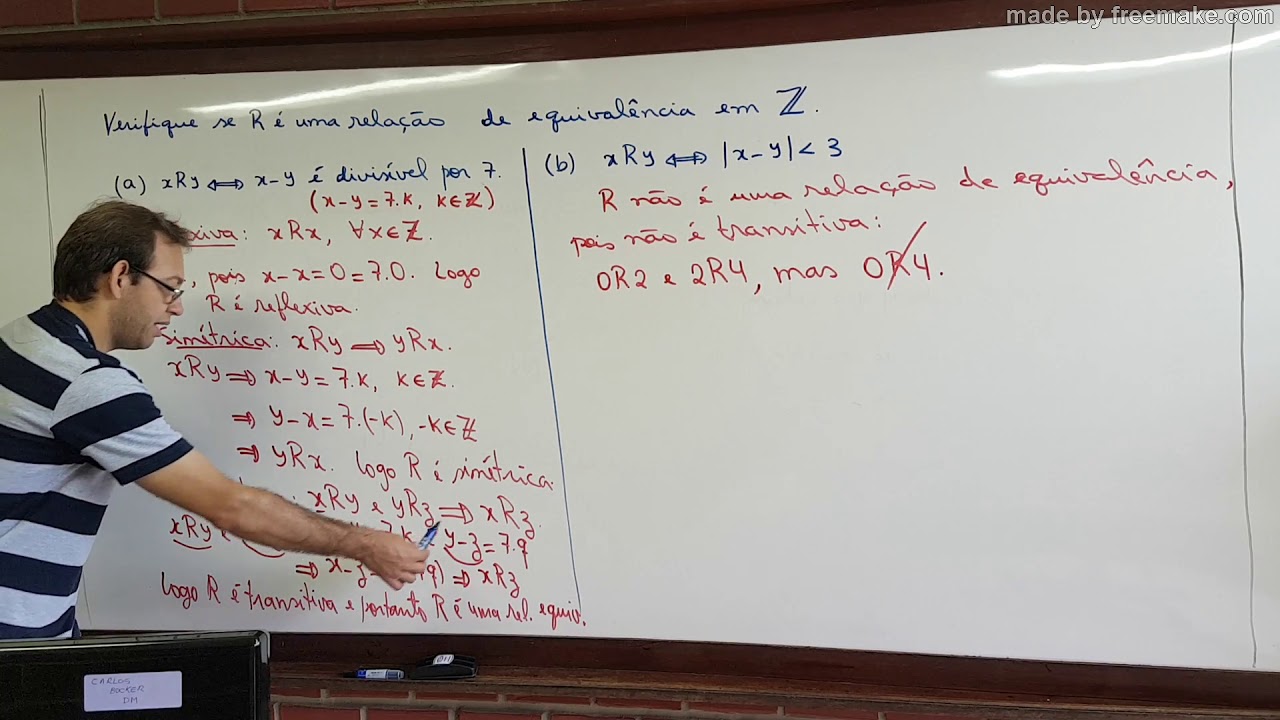 made by freemake.com
Verifique se R é uma relação de equivalência em ℤ.
(a) xRy ⟺ x-y é divisível por 7.
(x-y=7.k, k∈ℤ)
xiva: xRx, ∀x∈ℤ.
, pois x-x=0=7.0. Logo
R é reflexiva.
simétrica: xRy ⟹ yRx.
xRy ⟹ x-y=7.k, k∈ℤ.
⟹ y-x=7.(-k), -k∈ℤ
⟹ yRx. Logo R é simétrica.
xRy e yRz ⟹ xRz.
xRy y-z=7.q
⟹ x-z q) ⟹ xRz
Logo R é transitiva e portanto R é uma rel. equiv.
(b) xRy ⟺ |x-y|<3
R não é uma relação de equivalência,
pois não é transitiva:
0R2 e 2R4, mas 0R̸4.
CARLOS
BOCKER
DM